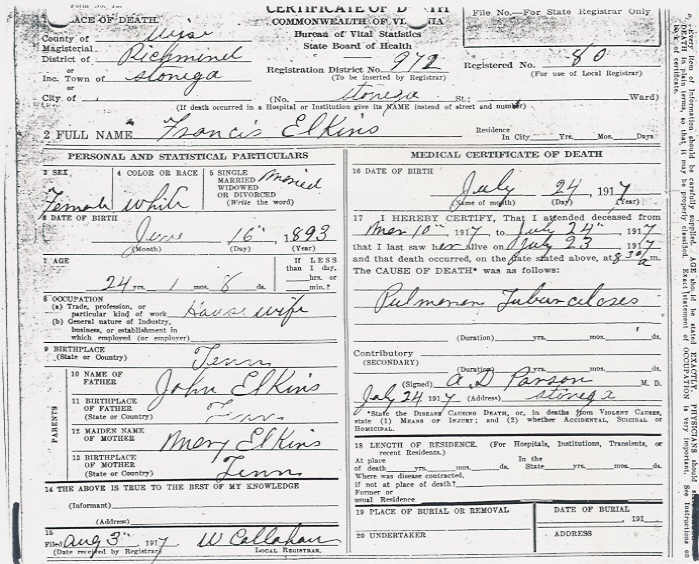 CERTIFICATE OF DEATH
PLACE OF DEATH.
COMMONWEALTH OF VIRGINIA
File No.—For State Registrar Only
County of Wise
Bureau of Vital Statistics
Magisterial
State Board of Health
District of Richmond
or
Registration District No. 972
Registered No. 80
Inc. Town of Stonega
(To be inserted by Registrar)
(For use of Local Registrar)
or
City of
(No. Stonega St.; Ward)
(If death occurred in a Hospital or Institution give its NAME instead of street and number)
2 FULL NAME Francis Elkins
Residence
In City Yrs. Mos. Days
PERSONAL AND STATISTICAL PARTICULARS
3 SEX
Female
4 COLOR OR RACE
White
5 SINGLE
MARRIED
WIDOWED
OR DIVORCED
(Write the word)
Married
6 DATE OF BIRTH
June 16" 1893
(Month) (Day) (Year)
7 AGE
24 yrs. 1 mos. 8 ds.
If LESS
than 1 day,
hrs. or
min.?
8 OCCUPATION
(a) Trade, profession, or
particular kind of work House wife
(b) General nature of Industry,
business, or establishment in
which employed (or employer)
9 BIRTHPLACE
(State or Country) Tenn
PARENTS
10 NAME OF
FATHER John Elkins
11 BIRTHPLACE
OF FATHER
(State or Country) Tenn
12 MAIDEN NAME
OF MOTHER Mary Elkins
13 BIRTHPLACE
OF MOTHER
(State or Country) Tenn
14 THE ABOVE IS TRUE TO THE BEST OF MY KNOWLEDGE
(Informant)
(Address)
15
Filed Aug 3" 1917 W Callahan
(Date received by Registrar) LOCAL REGISTRAR.
MEDICAL CERTIFICATE OF DEATH
16 DATE OF BIRTH
July 24, 1917
(Name of month) (Day) (Year)
17 I HEREBY CERTIFY, That I attended deceased from
Mar 10" 1917, to July 24" 1917
that I last saw her alive on July 23 1917
and that death occurred, on the date stated above, at 8 30/a m.
The CAUSE OF DEATH* was as follows:
Pulmonary Tuberculoses
(Duration) yrs. mos. ds.
Contributory
(SECONDARY)
(Duration) yrs. mos. ds.
(Signed) A D Parson M. D.
July 24 1917 (Address) Stonega
*State the DISEASE CAUSING DEATH, or, in deaths from VIOLENT CAUSES,
state (1) MEANS OF INJURY; and (2) whether ACCIDENTAL, SUICIDAL or
HOMICIDAL.
18 LENGTH OF RESIDENCE. (For Hospitals, Institutions, Transients, or
recent Residents.)
At place In the
of death yrs. mos. ds. State yrs. mos. ds.
Where was disease contracted,
if not at place of death?
Former or
usual Residence
19 PLACE OF BURIAL OR REMOVAL
DATE OF BURIAL
191
20 UNDERTAKER
ADDRESS
Every Item of Information should be carefully supplied. AGE should be stated EXACTLY. PHYSICIANS should
DEATH in plain terms, so that it may be properly classified. Exact statement of OCCUPATION is very important. See Instructions on
back of certificate.